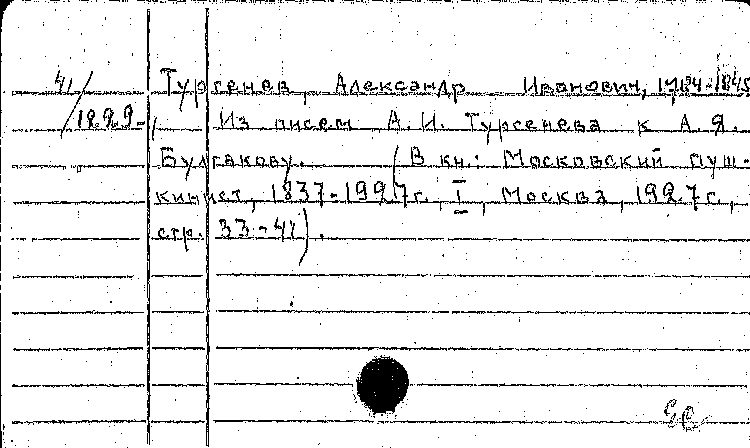 41/ Тургенев, Александр Иванович, 1784-1845
/1829-1 Из писем А. И. Тургенева к А. Я.
Булгакову. (В кн.: Московский пуш-
кинист, 1837-1927 г., I, Москва, 1927 г.,
стр. 33-41).